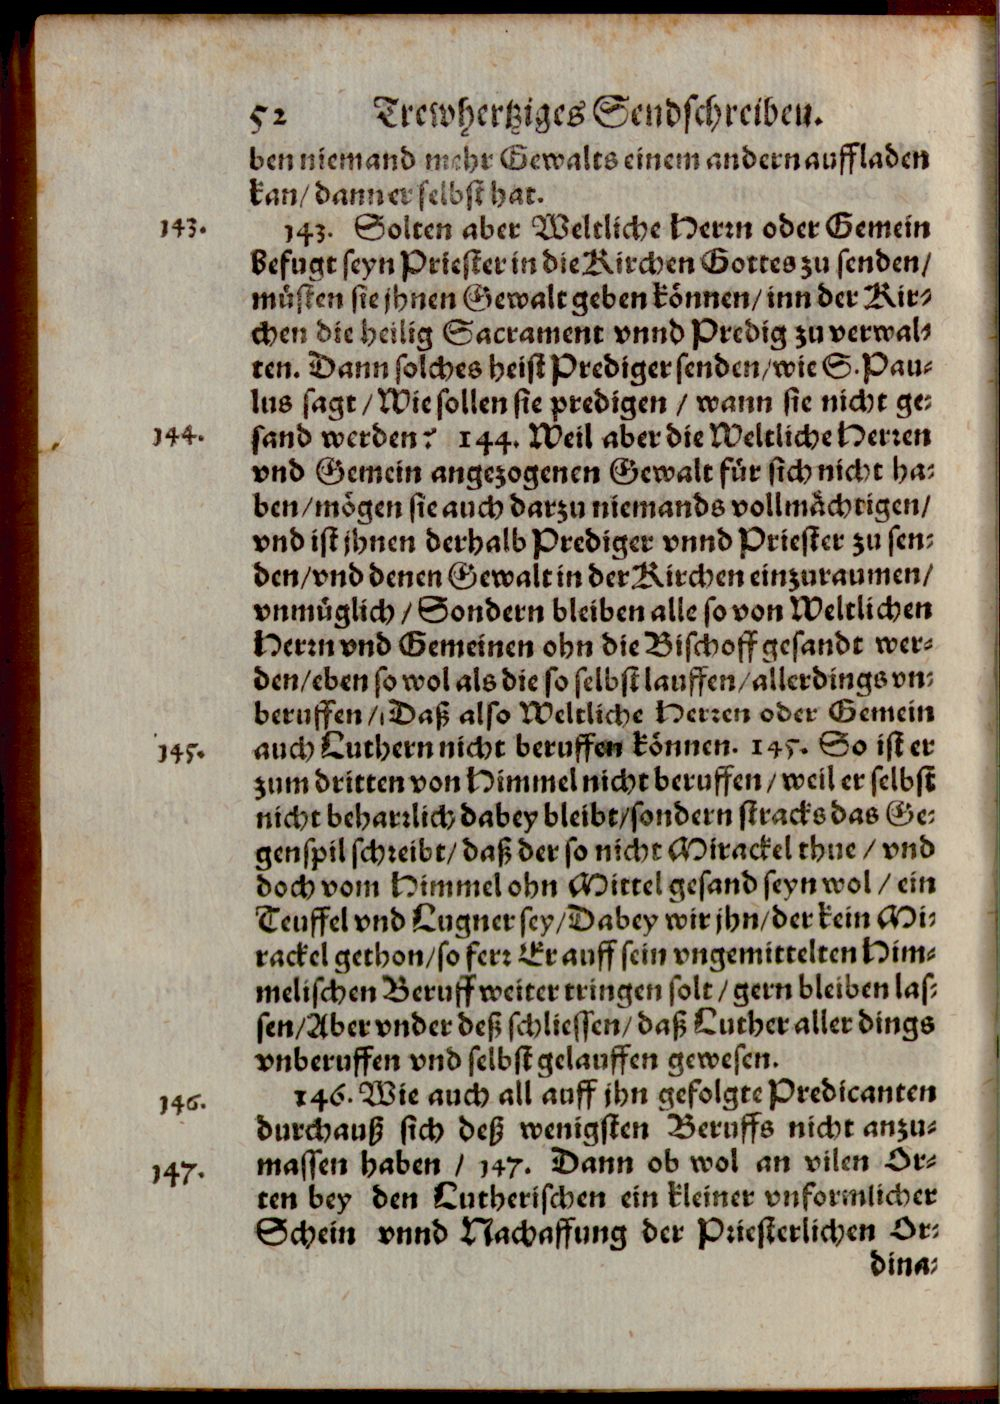 52 Trewhertziges Sendschreiben.
ben niemand mehr Gewalts einem andern auffladen
kan/ dann er selbst hat.
143. 143. Solten aber Weltliche Herrn oder Gemein
befugt seyn Priester in die Kirchen Gottes zu senden/
müsten sie jhnen Gewalt geben können/ inn der Kir-
chen die heilig Sacrament vnnd Predig zu verwal-
ten. Dann solches heist Prediger senden/ wie S. Pau-
lus sagt / Wie sollen sie predigen / wann sie nicht ge-
144. sand werden? 144. Weil aber die Weltliche Herren
vnd Gemein angezogenen Gewalt für sich nicht ha-
ben/ mögen sie auch darzu niemands vollmächtigen/
vnd ist jhnen derhalb Prediger vnnd Priester zu sen-
den/ vnd denen Gewalt in der Kirchen einzuraumen/
vnmüglich / Sondern bleiben alle so von Weltlichen
Herrn vnd Gemeinen ohn die Bischoff gesandt wer-
den/ eben so wol als die so selbst lauffen/ allerdings vn-
beruffen/ Daß also Weltliche Herren oder Gemein
145. auch Luthern nicht beruffen können. 145. So ist er
zum dritten von Himmel nicht beruffen/ weil er selbst
nicht beharrlich dabey bleibt/ sondern stracks das Ge-
genspil schreibt/ daß der so nicht Mirackel thue / vnd
doch vom Himmel ohn Mittel gesand seyn wol / ein
Teuffel vnd Lugner sey/ Dabey wir jhn/ der kein Mi-
rackel gethon/ so ferr Er auff sein vngemittelten Him-
melischen Beruff weiter tringen solt / gern bleiben las-
sen/ Aber vnder deß schliessen/ daß Luther aller dings
vnberuffen vnd selbst gelauffen gewesen.
146. 146. Wie auch all auff jhn gefolgte Predicanten
durchauß sich deß wenigsten Beruffs nicht anzu-
147. massen haben / 147. Dann ob wol an vilen Or-
ten bey den Lutherischen ein kleiner vnformlicher
Schein vnnd Nachaffung der Priesterlichen Or-
dina-